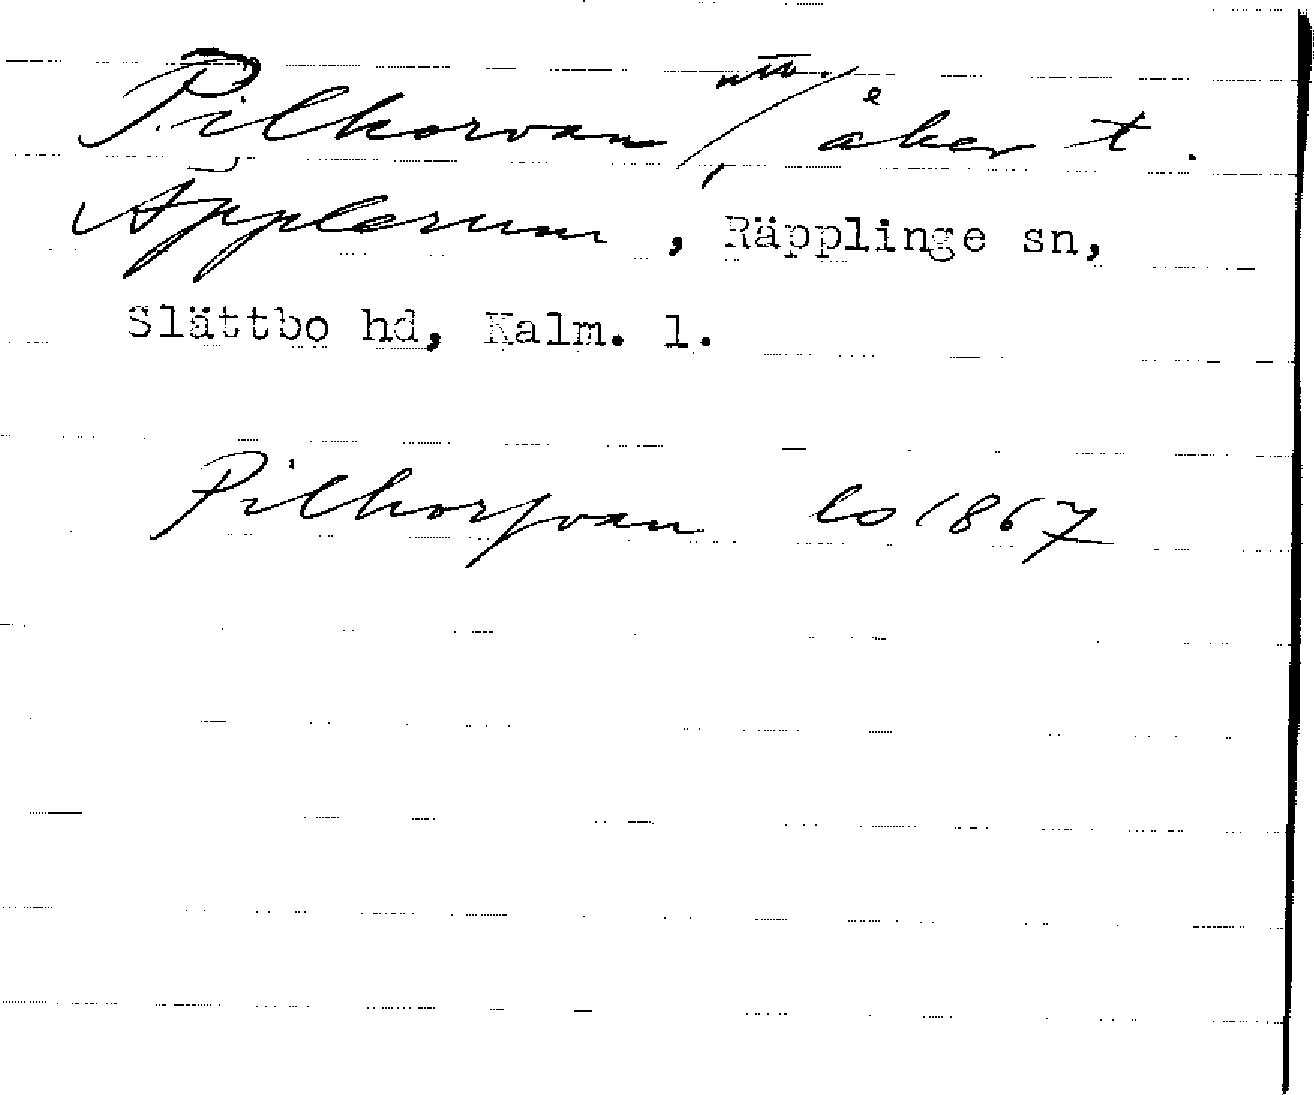 Pilkorvan / åker t.
Äpplerum, Räpplinge sn,
Slättbo hd, Kalm. l.
Pilkorfvan Lo 1867